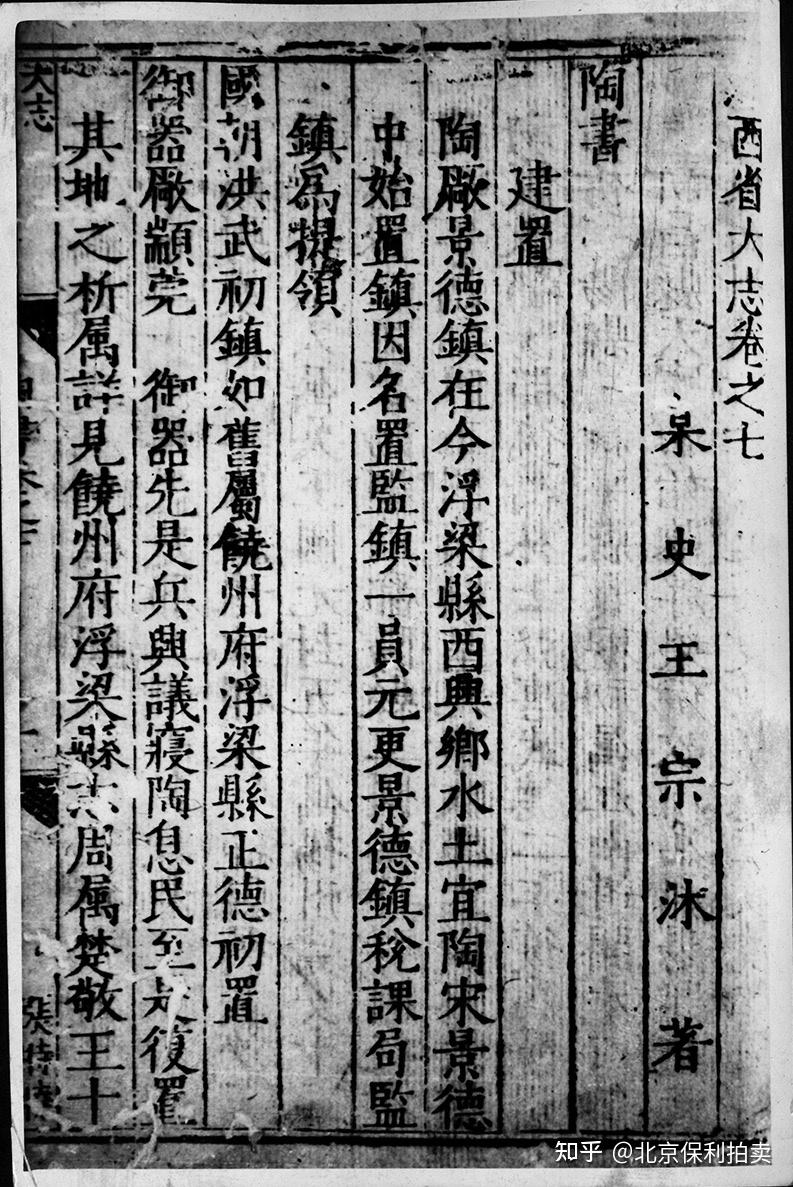 西省大志卷之七
臬史王宗沐著
陶書
建置
陶厰景德鎮在今浮梁縣西興鄉水土宜陶宋景德
中始置鎮因名置監鎮一員元更景德鎮稅課局監
鎮爲提領
國朝洪武初鎮如舊屬饒州府浮梁縣正德初置
御器厰顓莞 御器先是兵興議寢陶息民至是復置
其地之析属詳見饒州府浮梁縣志周属楚敬王十
大志
知乎 @北京保利拍卖